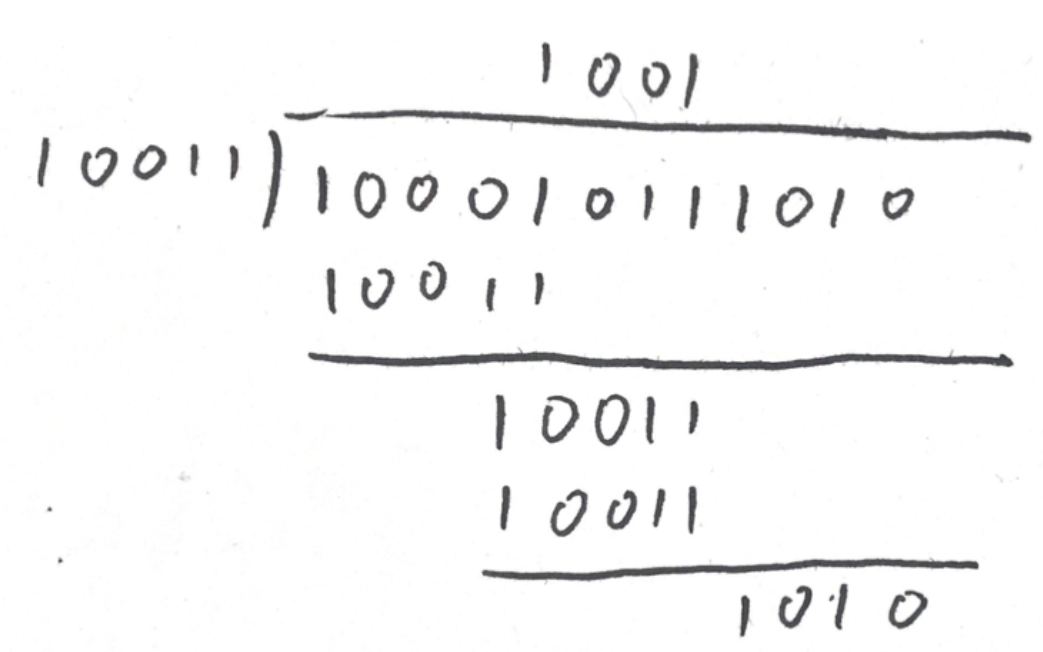 1001
10011)100010111010
10011
10011
10011
1010